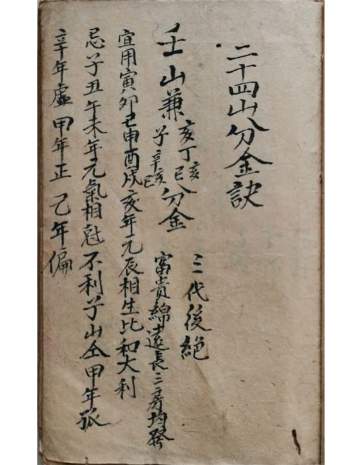 二十四山分金訣
壬山兼亥丁亥巳 子辛亥巳分金 三代後絶 富貴綿遠長二房均發
宜用寅卯巳申酉戌亥年元辰相生比和大利
忌子丑午未年元氣相尅不利子山仝甲年孤
辛年虛甲年正乙年偏